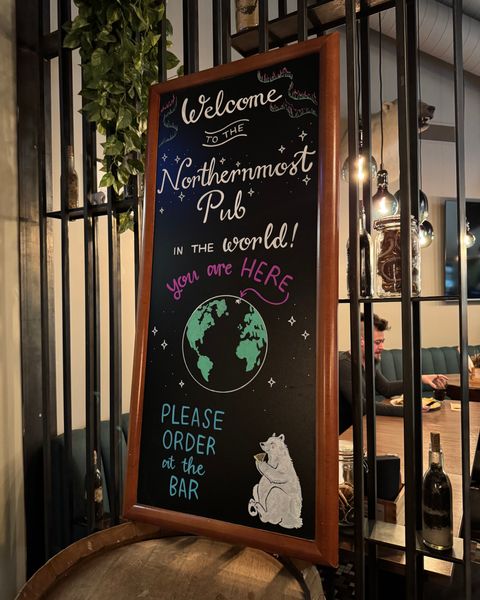 Welcome
TO THE
Northernmost
Pub
IN THE world!
you are HERE
PLEASE
ORDER
at the
BAR